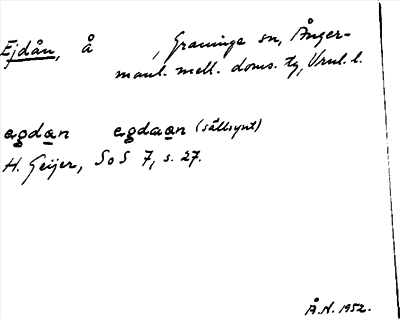 Ejdån, å , Graninge sn, Ånger-
manl. mell. doms. tg, Vnrl. l.
egdan egdaan (sällsynt)
H. Geijer, SoS 7, s. 27.
Å.N. 1952.